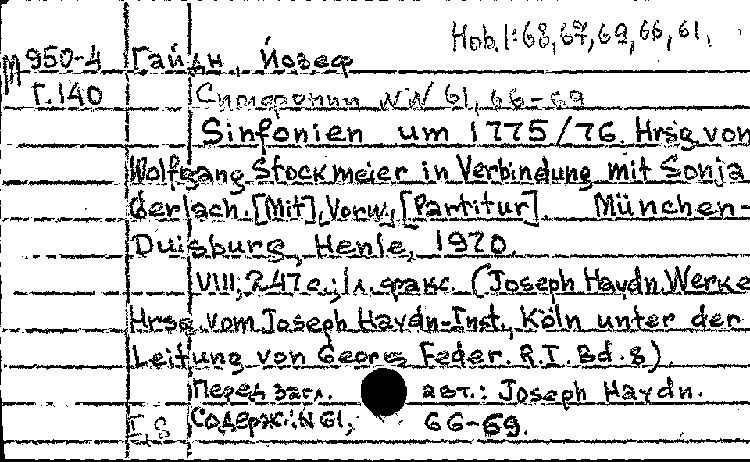 Hob.I:68,67,69,66,61.
М 950-4 Гайдн, Йозеф
Г.140 Симфонии №№ 61, 66-69
Sinfonien um 1775/76. Hrsg. von
Wolfgang Stockmeier in Verbindung mit Sonja
Gerlach. [Mit] Vorw. [Partitur]. München-
Duisburg, Henle, 1970.
VIII, 247 с.; 1 л. факс. (Joseph Haydn. Werke
Hrsg. vom Joseph Haydn-Inst., Köln unter der
Leitung von Georg Feder. R.I. Bd. 8).
Перед загл. авт.: Joseph Haydn.
I,8 Содерж.: N 61, 66-69.